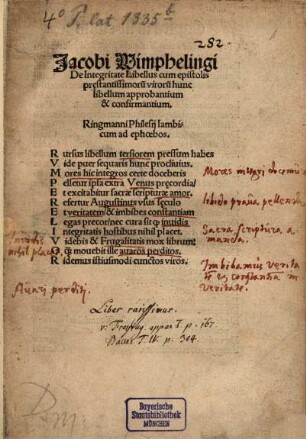 4° P. lat 1335 b
282.
Jacobi Wimphelingi
De Integritate Libellus cum epistolis
prestantissimorū virorū hunc
libellum approbantium
& confirmantium.
Ringmanni Philesij Iambi
cum ad ephœbos.
R ursus libellum tersiorem pressum habes
V ide puer sequaris hunc procliuius.
M ores hic integros certe doceberis
P ellent ipsa extra Venus precordia
E t excitabitur sacræ scripturæ amor.
R efertur Augustinus vsus seculo
E t veritatem & imbibes constantiam
L egas preconince cura sit qp inuidia
I ntegritatis hostibus nihil placet.
V idebis & Frugalitatis mox librum
Q, mouebit ille auaros perditos.
R idemus istiusmodi cunctos viros.
Mores integri docemur
libido praua pellenda
Sacra scriptura a
manda.
Imbibamus verita
tem et constantia in
veritate.
nihil placet
Auari perditi
Liber rarissimus.
v. Freytag appar. T. p. 167.
T. IV. p. 304.
Bayerische
Staatsbibliothek
MÜNCHEN